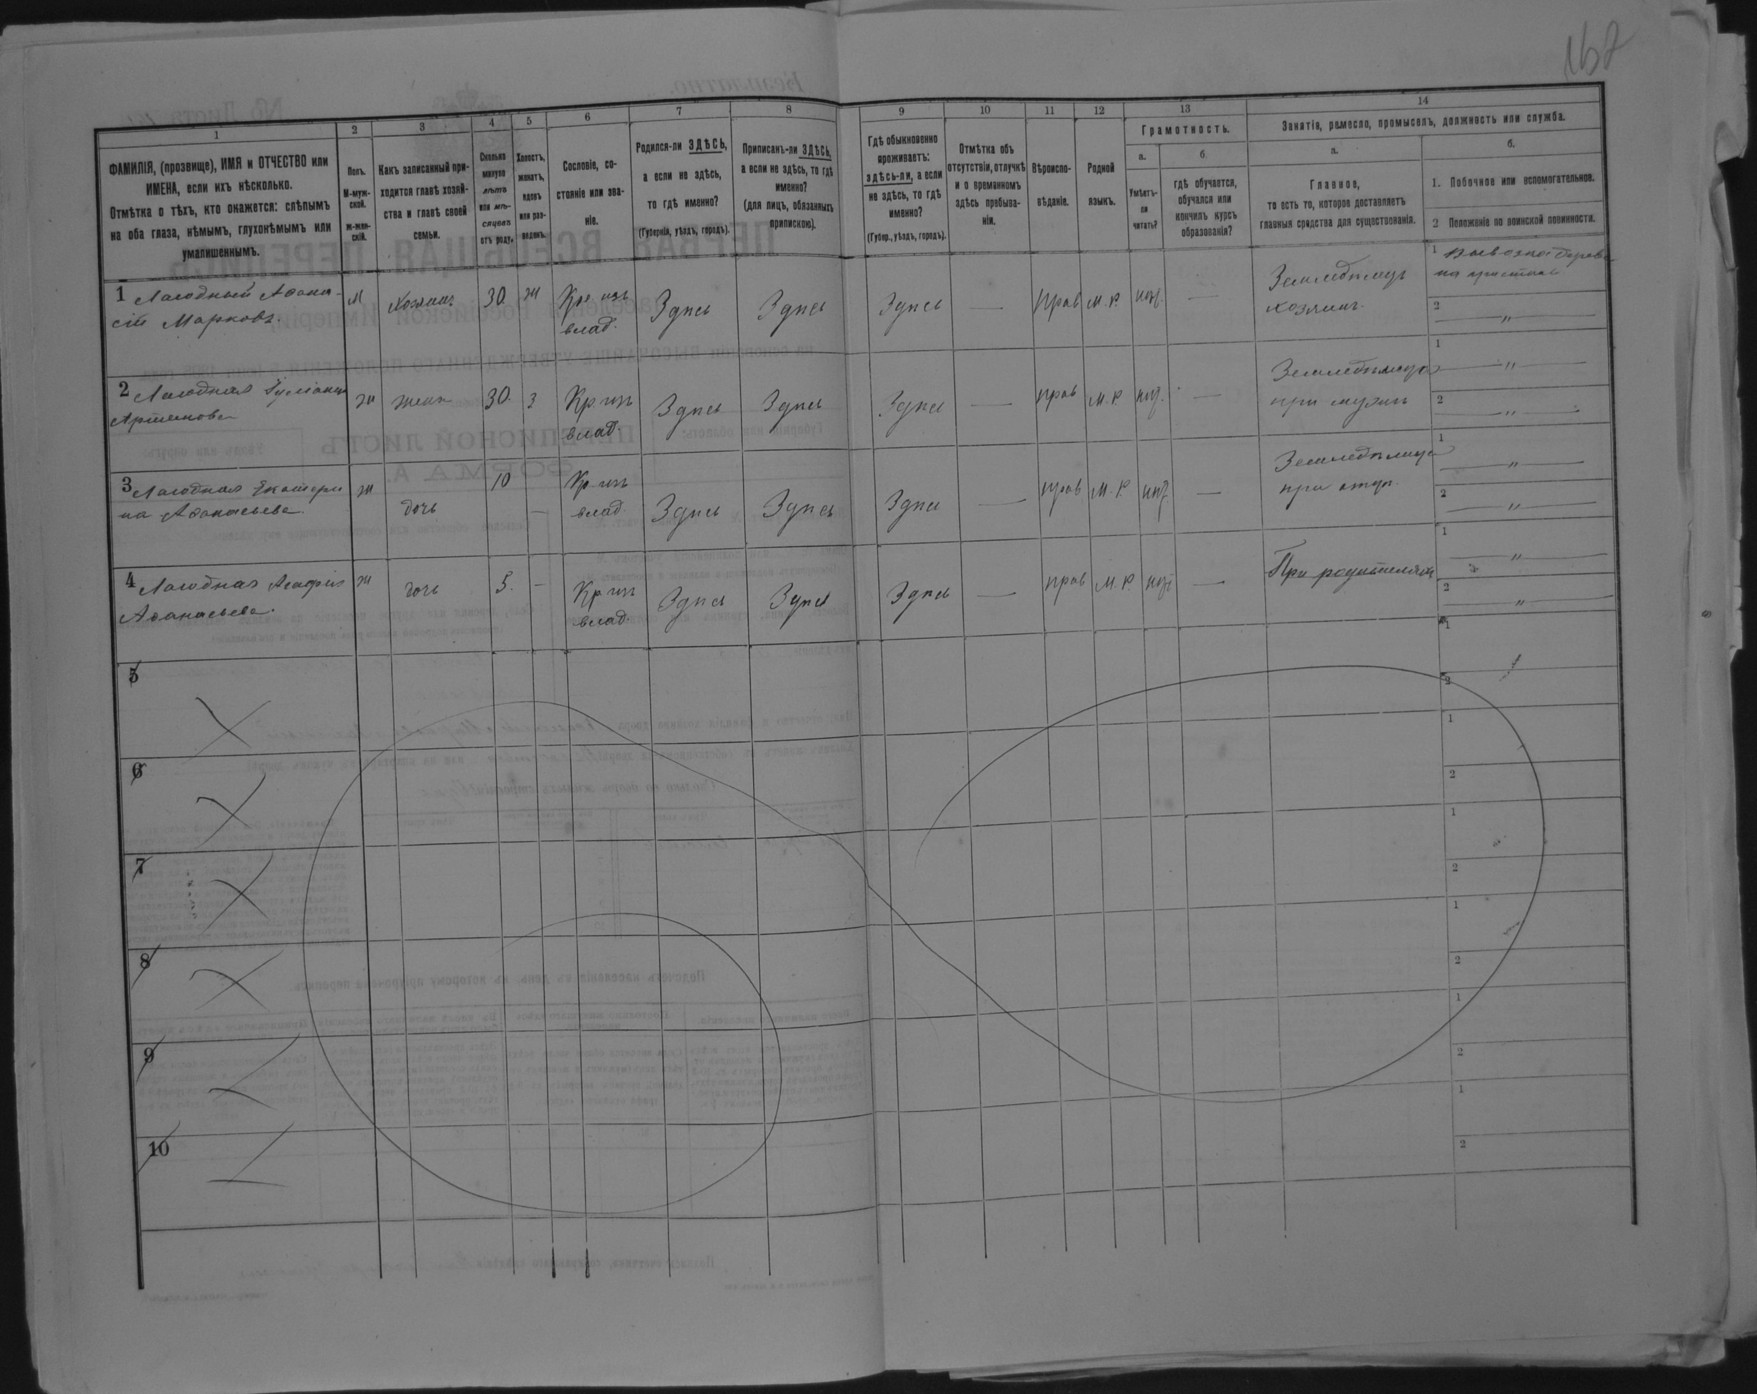 167
1
2
3
4
5
6
7
8
9
10
11
12
13
14
ФАМИЛІЯ, (прозвище), ИМЯ и ОТЧЕСТВО или
ИМЕНА, если ихъ нѣсколько.
Отмѣтка о тѣхъ, кто окажется: слѣпымъ
на оба глаза, нѣмымъ, глухонѣмымъ или
умалишеннымъ.
Полъ.
М-муж-
ской.
Ж-жен-
скій.
Какъ записанный при-
ходится главѣ хозяй-
ства и главѣ своей
семьи.
Сколько
минуло
лѣтъ
или мѣ-
сяцевъ
отъ роду.
Холостъ,
женатъ,
вдовъ
или раз-
веденъ.
Сословіе, со-
стояніе или зва-
ніе.
Родился-ли ЗДѢСЬ,
а если не здѣсь,
то гдѣ именно?
(Губернія, уѣздъ, городъ).
Приписанъ-ли ЗДѢСЬ,
а если не здѣсь, то гдѣ
именно?
(для лицъ, обязанныхъ
припискою).
Гдѣ обыкновенно
проживаетъ:
здѣсь-ли, а если
не здѣсь, то гдѣ
именно?
(Губер., уѣздъ, городъ).
Отмѣтка объ
отсутствіи, отлучкѣ
и о временномъ
здѣсь пребыва-
ніи.
Вѣроиспо-
вѣданіе.
Родной
языкъ.
Грамотность.
а.
б.
Умѣетъ-
ли
читать?
гдѣ обучается,
обучался или
кончилъ курсъ
образованія?
Занятія, ремесло, промыселъ, должность или служба.
а.
б.
Главное,
то есть то, которое доставляетъ
главныя средства для существованія.
1. Побочное или вспомогательное.
2 Положеніе по воинской повинности.
1 Лагодный Афана-
сій Марковъ.
М
хозяинъ
30
ж
Кр. изъ
влад.
Здѣсь
Здѣсь
Здѣсь
—
Прав
М. Р.
нѣт.
—
Земледѣлецъ
хозяинъ
1
на пристань
2 "
2 Лагодная
Артемова
Ж
жена
30.
з
Кр изъ
влад.
Здѣсь
Здѣсь
Здѣсь
—
прав
М. Р
нѣт.
—
Земледѣлица
при мужѣ
1 "
2 "
3 Лагодная Екатери
на Афанасьева.
Ж
дочь
10
—
Кр изъ
влад
Здѣсь
Здѣсь
Здѣсь
—
прав
М. Р
нѣт
—
Земледѣлица
при отцѣ.
1 "
2 "
4 Лагодная Агафія
Афанасьева.
Ж
дочь
5.
—
Кр изъ
влад.
Здѣсь
Здѣсь
Здѣсь
—
прав
М. Р.
нѣт
—
При родителяхъ
1 "
2 "
5
1
2
6
1
2
7
1
2
8
1
2
9
1
2
10
1
2